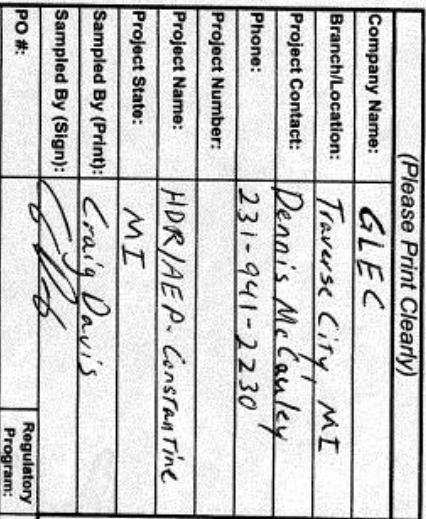 (Please Print Clearly)
Company Name: GLEC
Branch/Location: Traverse City, MI
Project Contact: Dennis McCauley
Phone: 231-941-2230
Project Number:
Project Name: HDR/AEP-Constantine
Project State: MI
Sampled By (Print): Craig Davis
Sampled By (Sign):
PO #: Regulatory Program: